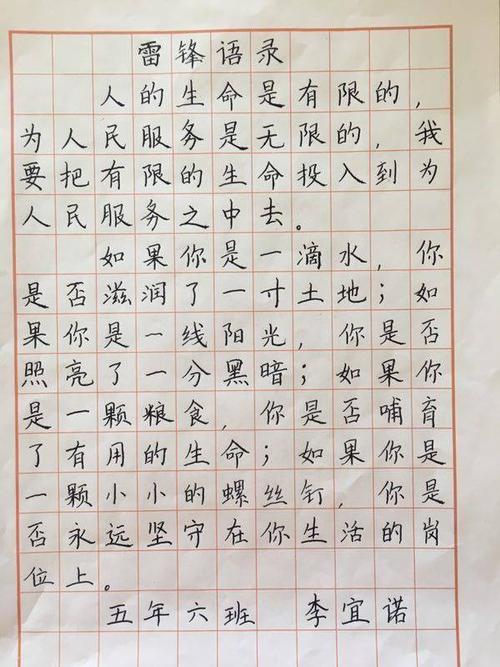 雷锋语录
人的生命是有限的，
为人民服务是无限的，我
要把有限的生命投入到为
人民服务之中去。
如果你是一滴水，你
是否滋润了一寸土地；如
果你是一线阳光，你是否
照亮了一分黑暗；如果你
是一颗粮食，你是否哺育
了有用的生命；如果你是
一颗小小的螺丝钉，你是
否永远坚守在你生活的岗
位上。
五年六班 李宜诺